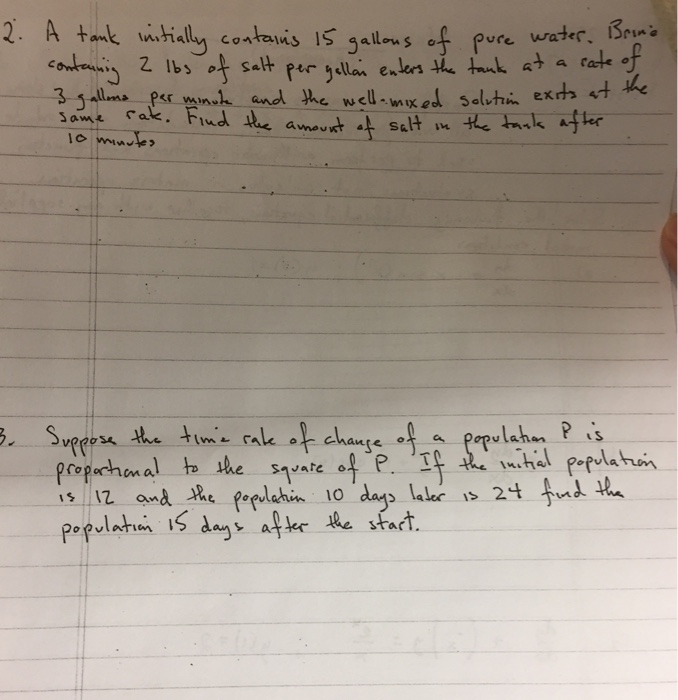 2. A tank initially contains 15 gallons of pure water. Brine
containing 2 lbs of salt per gallon enters the tank at a rate of
3 gallons per minute and the well-mixed solution exits at the
same rate. Find the amount of salt in the tank after
10 minutes
3. Suppose the time rate of change of a population P is
proportional to the square of P. If the initial population
is 12 and the population 10 days later is 24 find the
population 15 days after the start.